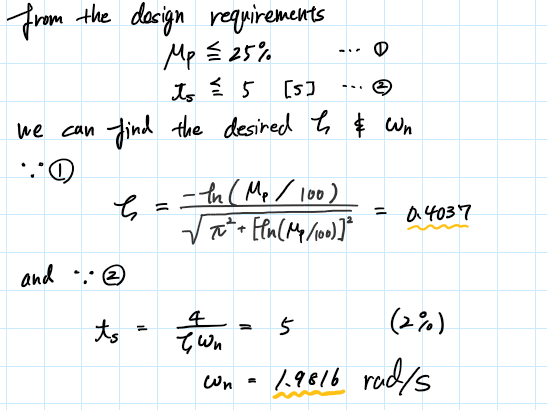 from the design requirements
Mp ≦ 25% ... ①
ts ≦ 5 [s] ... ②
we can find the desired ζ & ωn
∵ ①
ζ = -ln(Mp/100) / √(π² + [ln(Mp/100)]²) = 0.4037
and ∵ ②
ts = 4 / ζωn = 5 (2%)
ωn = 1.9816 rad/s